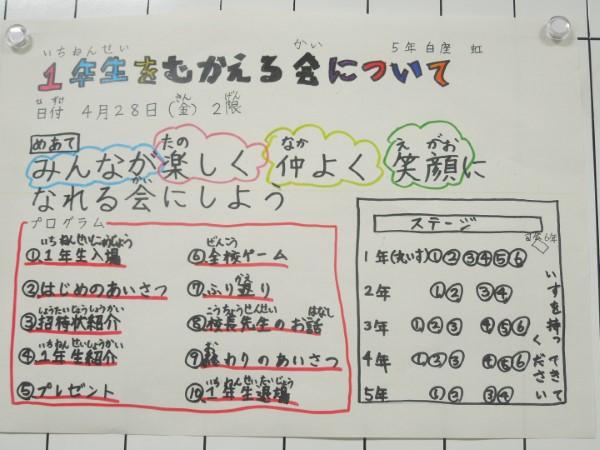 いちねんせい かい
5年 白座 虹
1年生をむかえる会について
ひづけ きん げん
日付 4月28日(金) 2限
めあて
たの なか えがお
みんなが楽しく 仲よく 笑顔に
かい
なれる会にしよう
プログラム
いちねんせいにゅうじょう
①1年生入場
②はじめのあいさつ
しょうたいじょうしょうかい
③招待状紹介
いちねんせいしょうかい
④1年生紹介
⑤プレゼント
ぜんこう
⑥全校ゲーム
かえ
⑦ふり返り
こうちょうせんせい はなし
⑧校長先生のお話
お
⑨終わりのあいさつ
いちねんせいたいじょう
⑩1年生退場
ステージ
司会6年
1年(れいす)①② ③④⑤⑥
2年 ①② ③④
3年 ①②③ ④⑤⑥
4年 ①②③ ④⑤⑥
5年 ①② ③④
いすを持ってきてください